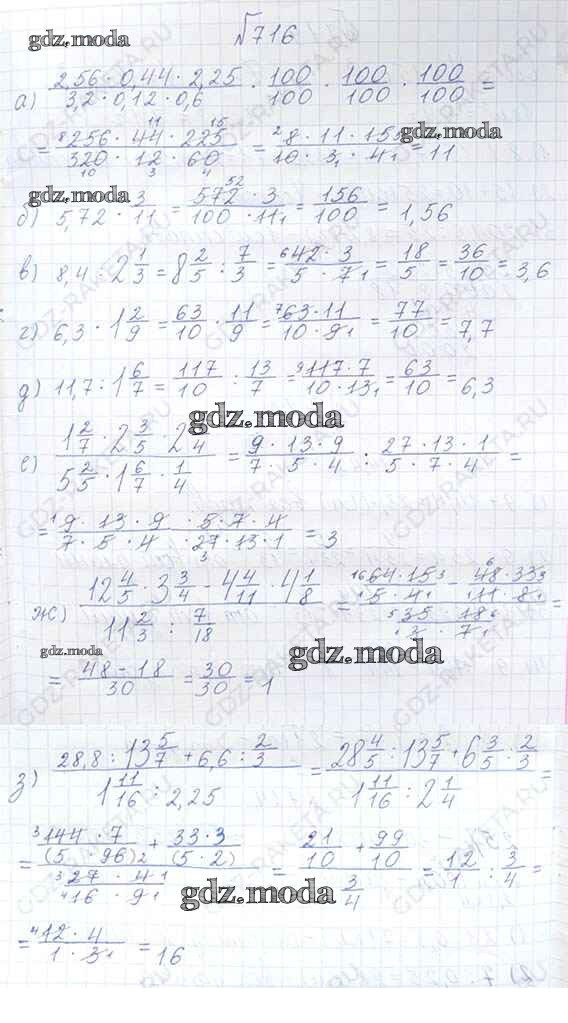 №716
gdz.moda
а) 2,56 · 0,44 · 2,25 / 3,2 · 0,12 · 0,6 · 100/100 · 100/100 · 100/100 =
= 256 · 44 · 225 / 320 · 12 · 60 = 8 · 11 · 15 / 10 · 3 · 4 = 11
gdz.moda
gdz.moda
б) 5,72 · 3/11 = 572 · 3 / 100 · 11 = 156/100 = 1,56
в) 8,4 : 2 1/3 = 8 2/5 : 7/3 = 42 · 3 / 5 · 7 = 18/5 = 36/10 = 3,6
г) 6,3 · 1 2/9 = 63/10 · 11/9 = 63 · 11 / 10 · 9 = 77/10 = 7,7
д) 11,7 : 1 6/7 = 117/10 : 13/7 = 117 · 7 / 10 · 13 = 63/10 = 6,3
gdz.moda
е) 1 2/7 · 2 3/5 · 2 1/4 / 5 2/5 · 1 6/7 · 1/4 = 9 · 13 · 9 / 7 · 5 · 4 : 27 · 13 · 1 / 5 · 7 · 4 =
= 9 · 13 · 9 · 5 · 7 · 4 / 7 · 5 · 4 · 27 · 13 · 1 = 3
ж) 12 4/5 · 3 3/4 - 4 4/11 · 4 1/8 / 11 2/3 : 7/18 = 64 · 15 / 5 · 4 - 48 · 33 / 11 · 8 / 35 · 18 / 3 · 7 =
gdz.moda
gdz.moda
= 48 - 18 / 30 = 30/30 = 1
з) 28,8 : 13 5/7 + 6,6 : 2/3 / 1 11/16 : 2,25 = 28 4/5 : 13 5/7 + 6 3/5 : 2/3 / 1 11/16 : 2 1/4 =
= 144 · 7 / (5 · 96) + 33 · 3 / (5 · 2) / 27 · 4 / 16 · 9 = 21/10 + 99/10 / 3/4 = 12/1 : 3/4 =
gdz.moda
= 12 · 4 / 1 · 3 = 16